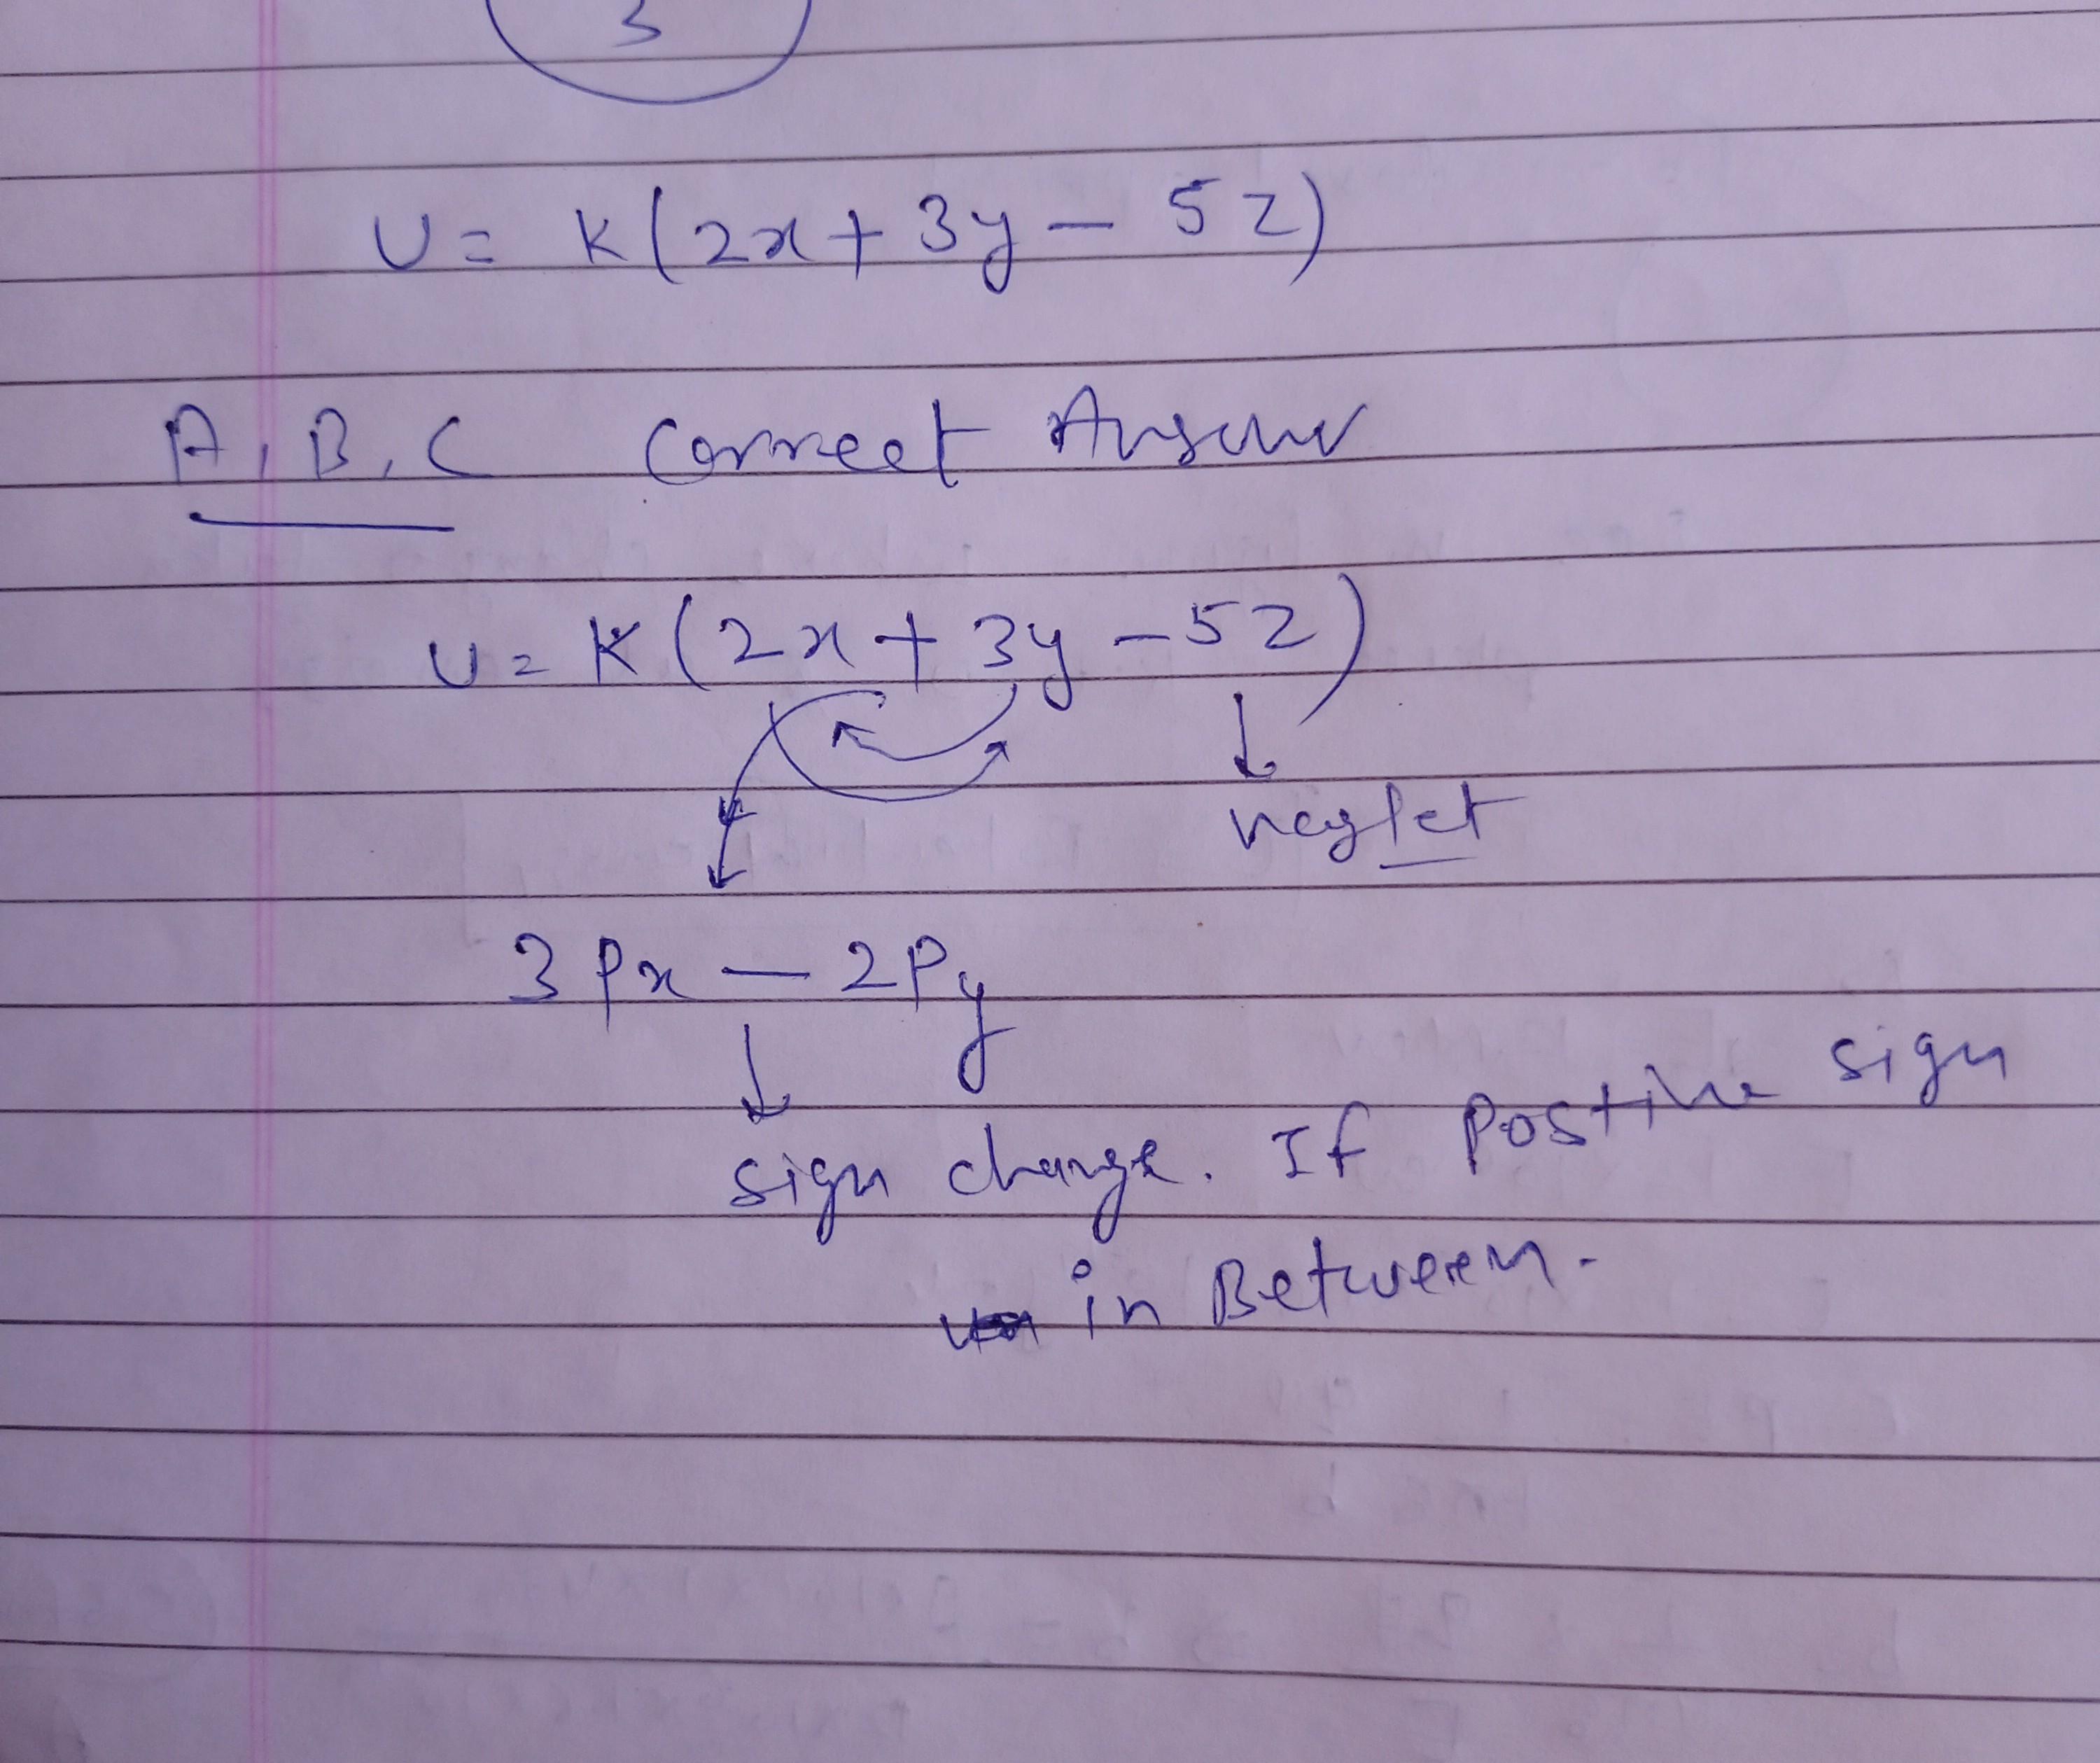 3
U = K(2x + 3y - 5z)
A, B, C correct Answer
U = K(2x + 3y - 5z)
neglet
3Px - 2Py
sign change. If Postive sign
in Between.